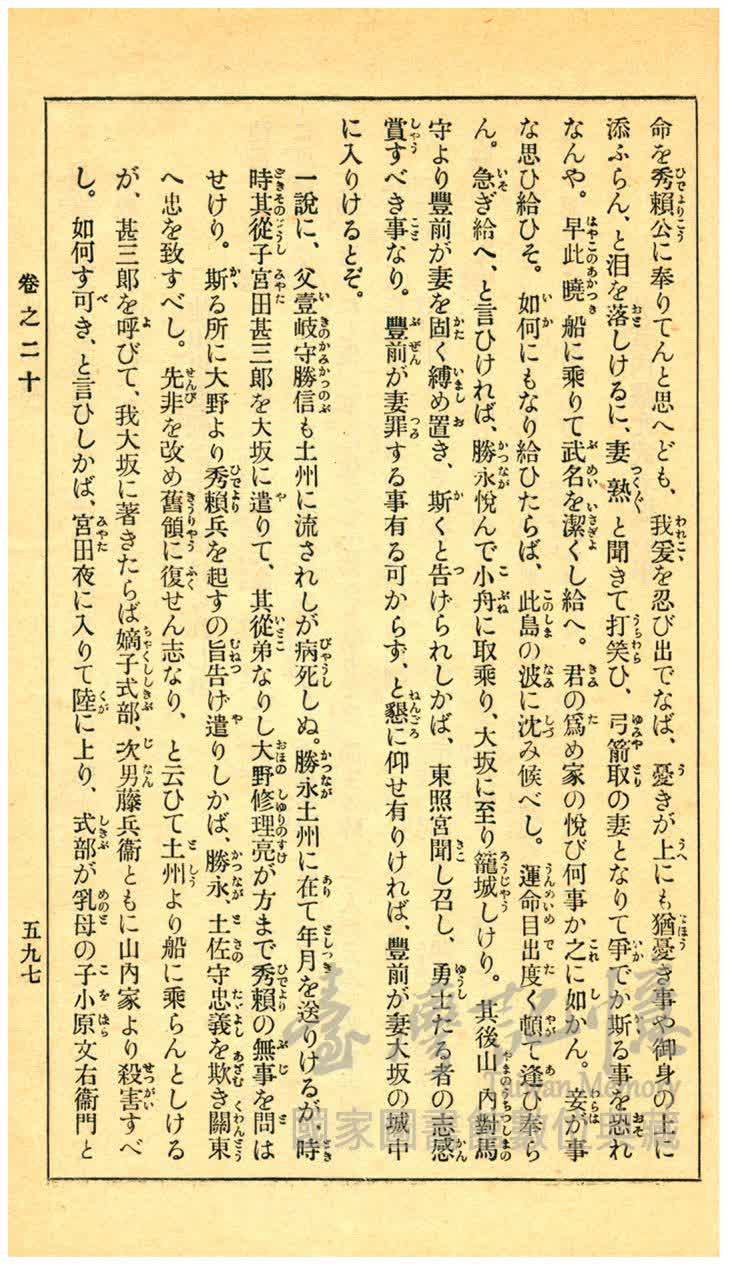 命を秀賴公に奉りてんと思へども、我爰を忍び出でなば、憂きが上にも猶憂き事や御身の上に
添ふらん、と泪を落しけるに、妻熟〻と聞きて打笑ひ、弓箭取の妻となりて爭でか斯る事を恐れ
なんや。早此曉船に乘りて武名を潔くし給へ。君の爲め家の悅び何事か之に如かん。妾が事
な思ひ給ひそ。如何にもなり給ひたらば、此島の波に沈み候べし。運命目出度く頓て逢ひ奉ら
ん。急ぎ給へ、と言ひければ、勝永悅んで小舟に取乘り、大坂に至り籠城しけり。其後山內對馬
守より豐前が妻を固く縛め置き、斯くと告げられしかば、東照宮聞し召し、勇士たる者の志感
賞すべき事なり。豐前が妻罪する事有る可からず、と懇に仰せ有りければ、豐前が妻大坂の城中
に入りけるとぞ。
一說に、父壹岐守勝信も土州に流されしが病死しぬ。勝永土州に在て年月を送りけるが、時
時其從子宮田甚三郎を大坂に遣りて、其從弟なりし大野修理亮が方まで秀賴の無事を問は
せけり。斯る所に大野より秀賴兵を起すの旨告げ遣りしかば、勝永、土佐守忠義を欺き關東
へ忠を致すべし。先非を改め舊領に復せん志なり、と云ひて土州より船に乘らんとしける
が、甚三郎を呼びて、我大坂に著きたらば嫡子式部、次男藤兵衞ともに山內家より殺害すべ
し。如何す可き、と言ひしかば、宮田夜に入りて陸に上り、式部が乳母の子小原文右衞門と
卷之二十
五九七
臺灣記憶
Taiwan Memory
國家圖書館數位典藏